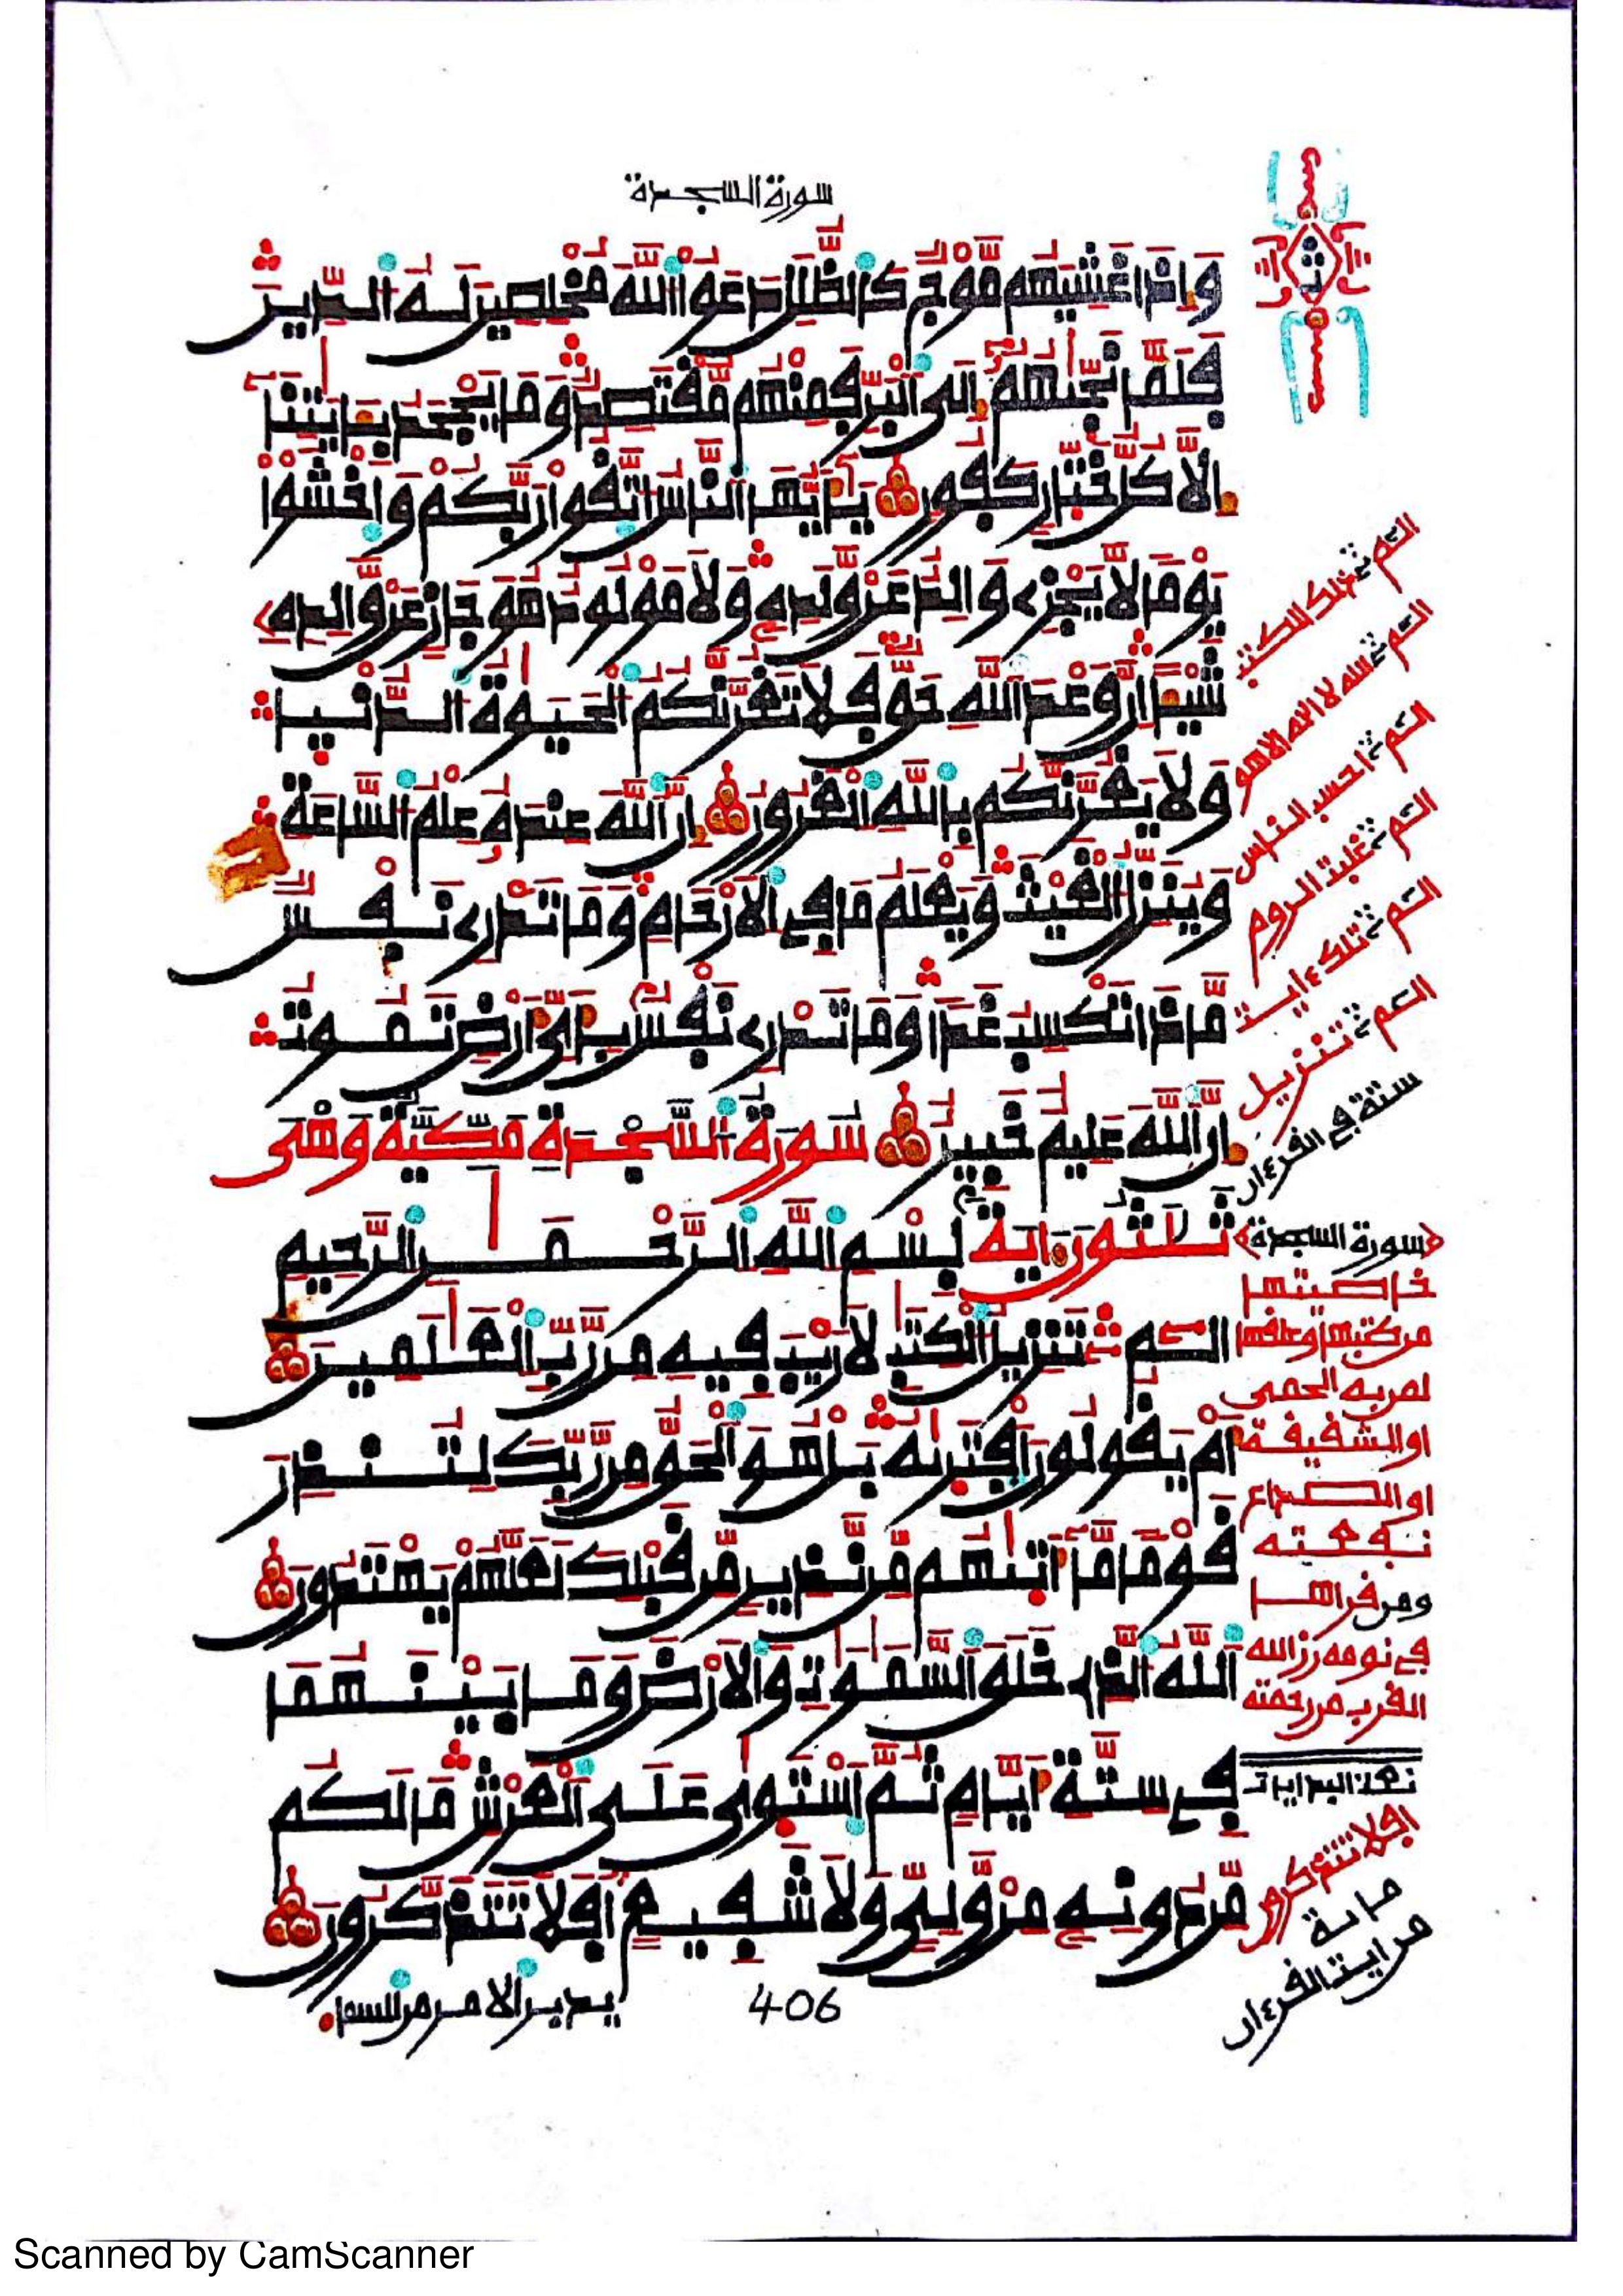 سورة السجدة
وَإِذَا غَشِيَهُم مَّوْجٌ كَالظُّلَلِ دَعَوُا اللَّهَ مُخْلِصِينَ لَهُ الدِّينَ
فَلَمَّا نَجَّىٰهُمْ إِلَى الْبَرِّ فَمِنْهُم مُّقْتَصِدٌ وَمَا يَجْحَدُ بِـَٔايَٰتِنَا
إِلَّا كُلُّ خَتَّارٍ كَفُورٍ يَٰأَيُّهَا النَّاسُ اتَّقُوا رَبَّكُمْ وَاخْشَوْا
يَوْمًا لَّا يَجْزِي وَالِدٌ عَن وَلَدِهِ وَلَا مَوْلُودٌ هُوَ جَازٍ عَن وَالِدِهِ
شَيْـًٔا إِنَّ وَعْدَ اللَّهِ حَقٌّ فَلَا تَغُرَّنَّكُمُ الْحَيَوٰةُ الدُّنْيَا
وَلَا يَغُرَّنَّكُم بِاللَّهِ الْغَرُورُ إِنَّ اللَّهَ عِندَهُ عِلْمُ السَّاعَةِ
وَيُنَزِّلُ الْغَيْثَ وَيَعْلَمُ مَا فِي الْأَرْحَامِ وَمَا تَدْرِي نَفْسٌ
مَّاذَا تَكْسِبُ غَدًا وَمَا تَدْرِي نَفْسٌ بِأَيِّ أَرْضٍ تَمُوتُ
إِنَّ اللَّهَ عَلِيمٌ خَبِيرٌ سُورَةُ السَّجْدَةِ مَكِّيَّةٌ وَهْيَ
ثَلَٰثُونَ ءَايَةً بِسْمِ اللَّهِ الرَّحْمَٰنِ الرَّحِيمِ
الٓمٓ تَنزِيلُ الْكِتَٰبِ لَا رَيْبَ فِيهِ مِن رَّبِّ الْعَٰلَمِينَ
أَمْ يَقُولُونَ افْتَرَىٰهُ بَلْ هُوَ الْحَقُّ مِن رَّبِّكَ لِتُنذِرَ
قَوْمًا مَّا أَتَىٰهُم مِّن نَّذِيرٍ مِّن قَبْلِكَ لَعَلَّهُمْ يَهْتَدُونَ
اللَّهُ الَّذِي خَلَقَ السَّمَٰوَٰتِ وَالْأَرْضَ وَمَا بَيْنَهُمَا
فِي سِتَّةِ أَيَّامٍ ثُمَّ اسْتَوَىٰ عَلَى الْعَرْشِ مَا لَكُم
مِّن دُونِهِ مِن وَلِيٍّ وَلَا شَفِيعٍ أَفَلَا تَتَذَكَّرُونَ
يدبر الامر من السماء
406
الم ذلك الكتب
الم الله لا اله الا هو
الم احسب الناس
الم غلبت الروم
الم تلك ءايت
الم تنزيل
ستة في القرءان
سورة السجدة
خاصيتها
من كتبها وعلقها
لمن به الحمى
او الشقيقة
او الصداع
نفعته
ومن قراها
في نومه رزق الله
القرب من رحمته
افلا تتذكرون
من ايت القرءان
Scanned by CamScanner